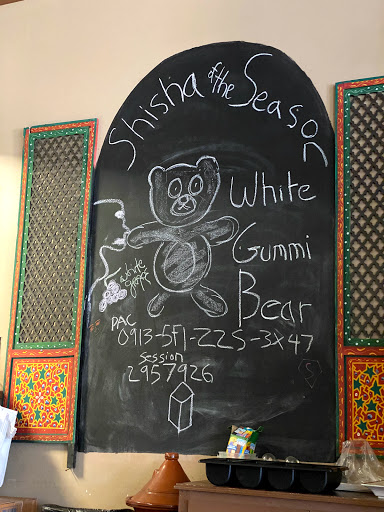 Shisha of the Season
White
Gummi
Bear
white
grape
PAC
0913-5f1-225-3X47
session
2957926